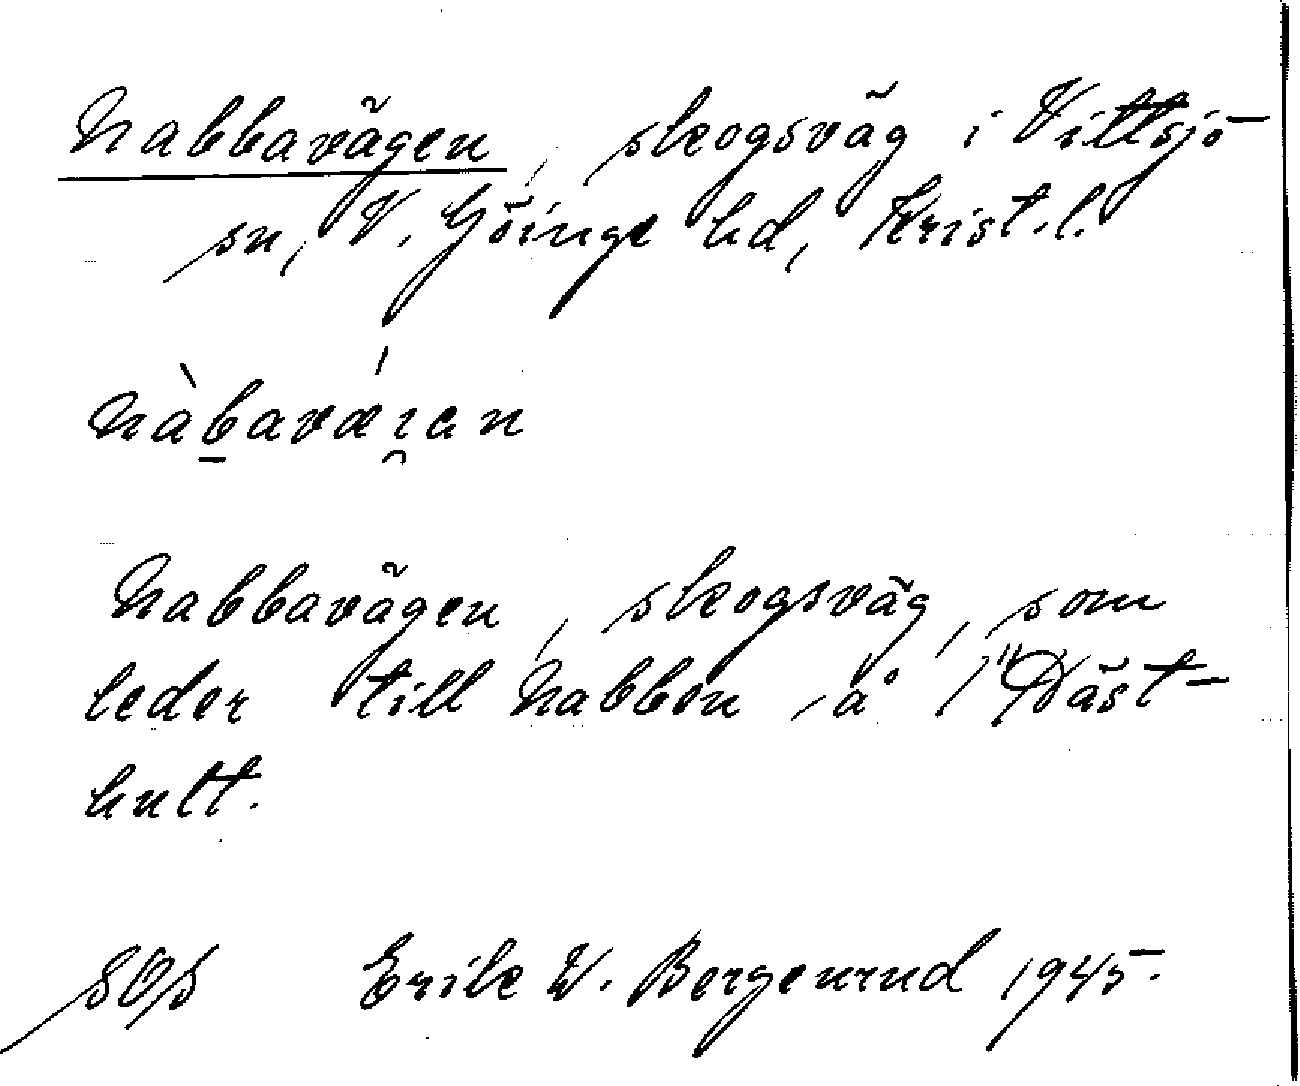 Nabbavägen, skogsväg i Vittsjö
sn, V. Göinge hd, Krist.l.
nàḇavǽɿ̯an
Nabbavägen, skogsväg, som
leder till Nabben å 1" Däst-
hult.
SOS Erik W. Bergenrud 1945.